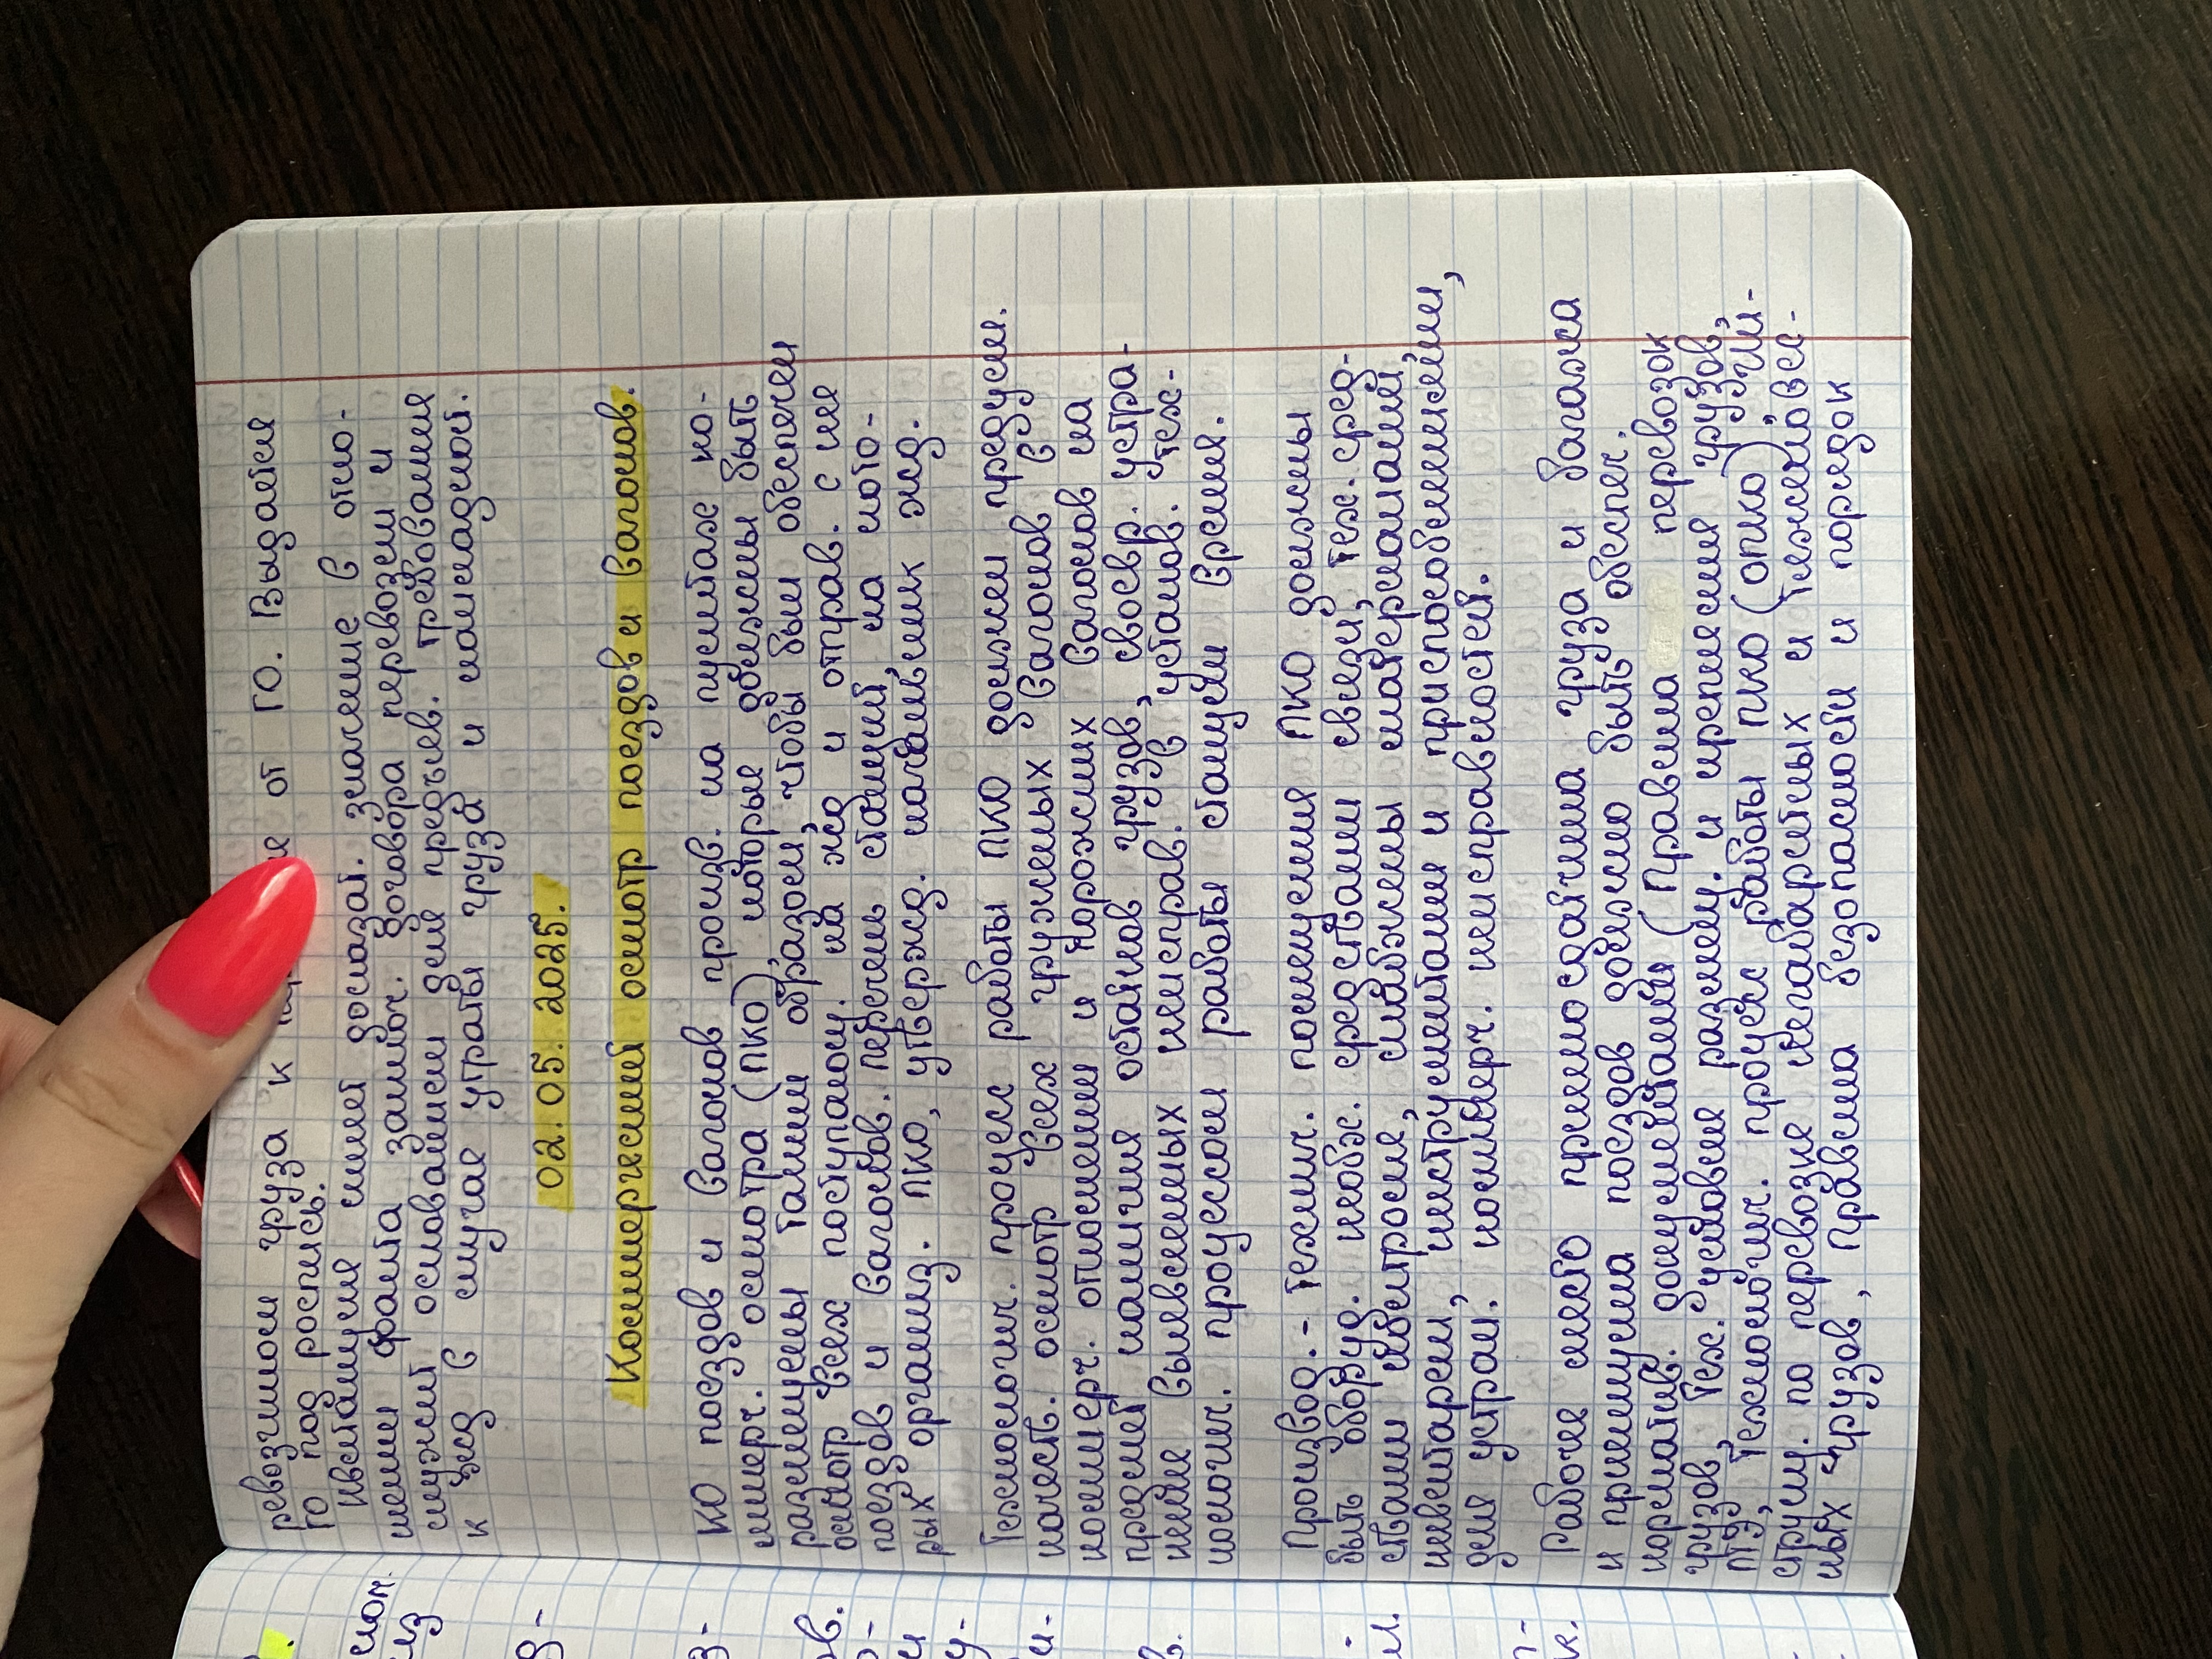 ревозчиком груза к не от ГО. Выдается
ГО под роспись.
Квитанция имеет доказат. значение в отно-
шении факта заключ. договора перевозки и
служит основанием для предъяв. требования
к жд в случае утраты груза и накладной.
02. 05. 2025.
Коммерческий осмотр поездов и вагонов.
КО поездов и вагонов произв. на пунктах ко-
ммерч. осмотра (ПКО), которые должны быть
размещены таким образом, чтобы был обеспечен
осмотр всех поступающ. на жд и отправ. с ни
поездов и вагонов. Перечень станций, на кото-
рых организ. ПКО, утвержд. начальник жд.
Технологич. процесс работы ПКО должен предусм.
качеств. осмотр всех груженых вагонов в
коммерч. отношении и порожних вагонов на
предмет наличия остатков грузов, своевр. устра-
нение выявленных неисправ. в установ. тех-
нологич. процессом работы станции время.
Производ. - технич. помещения ПКО должны
быть оборуд. необх. средствами связи, тех. сред-
ствами контроля, снабжены материалами,
инвентарем, инструментами и приспособлениями,
для устран. коммерч. неисправностей.
Рабочее место приемосдатчика груза и багажа
и приемщика поездов должно быть обеспеч.
норматив. документами (Правила перевозок
грузов, Тех. условия размещ. и крепления грузов,
ПТЭ, технологич. процесс работы ПКО (опко), Ин-
струкц. по перевозке негабаритных и тяжеловес-
ных грузов, Правила безопасности и порядок